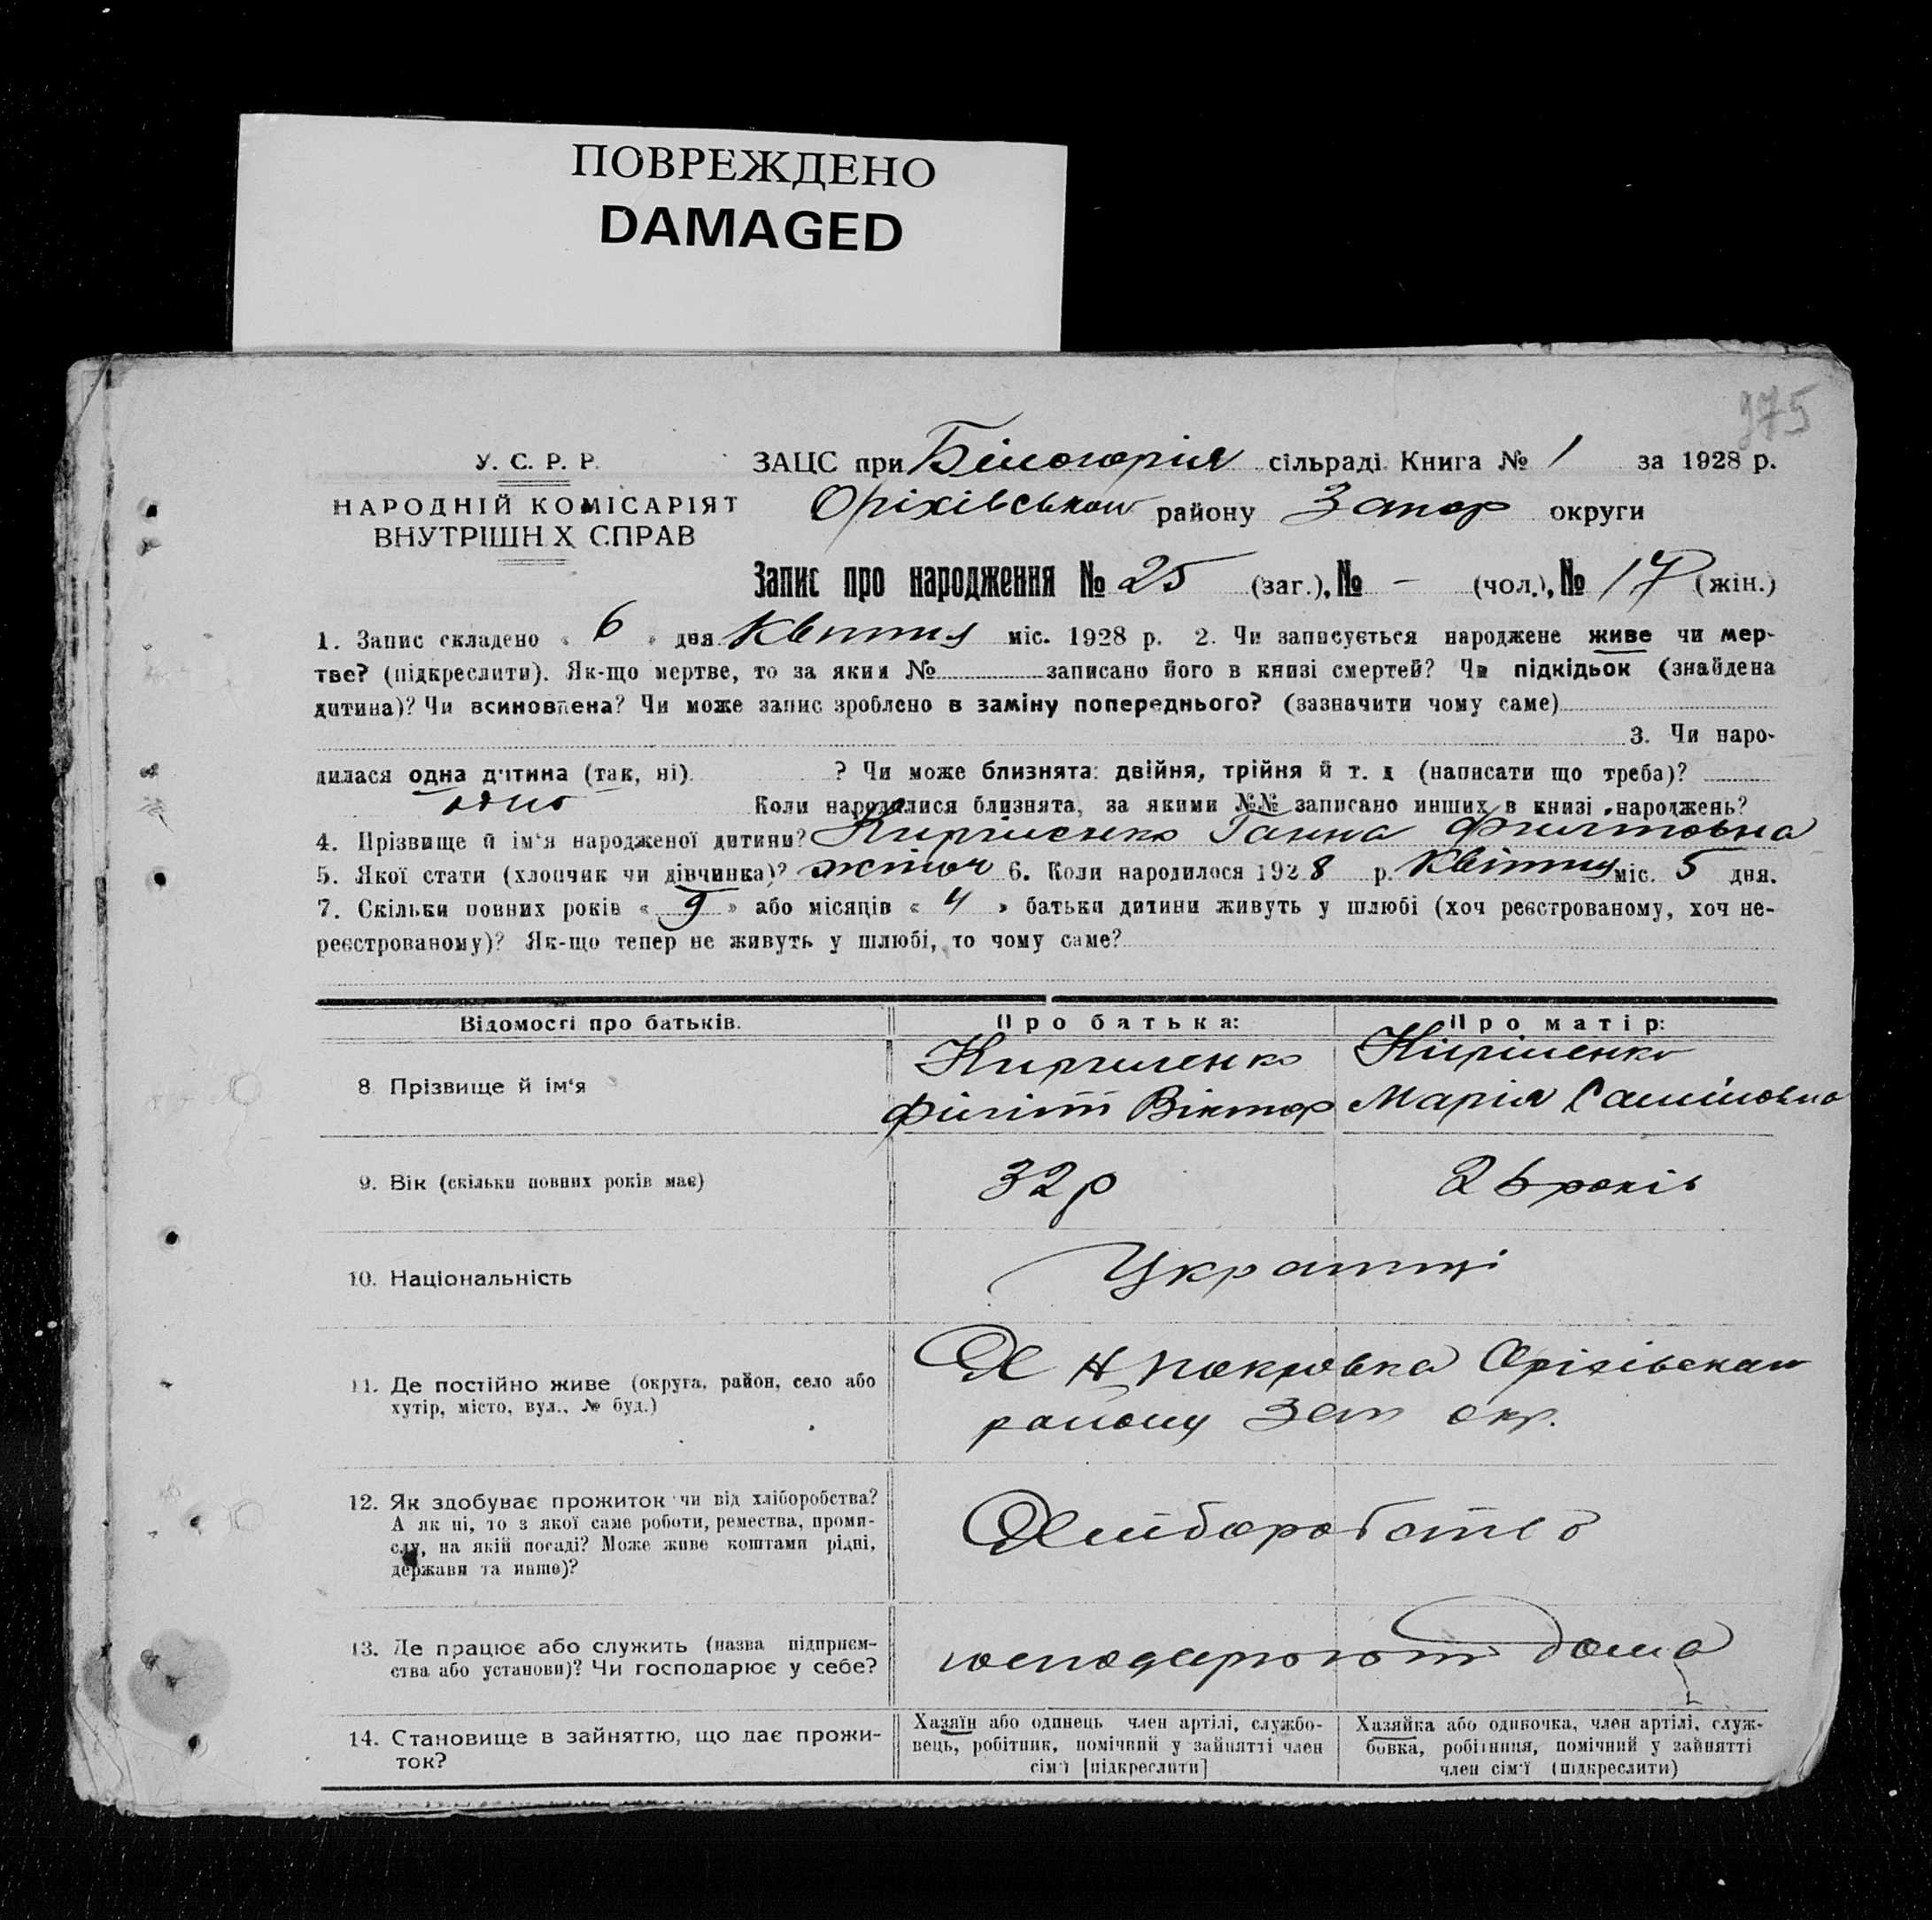 ПОВРЕЖДЕНО
DAMAGED
975
У. С. Р. Р.
НАРОДНІЙ КОМІСАРІЯТ
ВНУТРІШН Х СПРАВ
ЗАЦС при Білогорія сільраді Книга № 1 за 1928 р.
Оріхівськом району Запор округи
Запис про народження № 25 (заг.), № - (чол.), № 17 (жін.)
1. Запис складено « 6 » дня Квітня міс. 1928 р. 2. Чи записується народжене живе чи мер-
тве? (підкреслити). Як-що мертве, то за яким № записано його в книзі смертей? Чи підкідьок (знайдена
дитина)? Чи всиновлена? Чи може запис зроблено в заміну попереднього? (зазначити чому саме)
3. Чи наро-
дилася одна дитина (так, ні) ? Чи може близнята: двійня, трійня й т. д (написати що треба)?
одно Коли народилися близнята, за якими №№ записано инших в книзі народжень?
4. Прізвище й ім'я народженої дитини? Кириленко Ганна
5. Якої стати (хлопчик чи дівчинка)? жіноч 6. Коли народилося 1928 р. Квітня міс. 5 дня.
7. Скільки повних років « 9 » або місяців « 4 » батьки дитини живуть у шлюбі (хоч реєстрованому, хоч не-
реєстрованому)? Як-що тепер не живуть у шлюбі, то чому саме?
Відомості про батьків. Про батька: Про матір:
8 Прізвище й ім'я
Кириленко
Філіп Віктор
Кіріленко
Марія
9. Вік (скільки повних років має) 32 р 26 років
10. Національність Українці
11. Де постійно живе (округа, район, село або
хутір, місто, вул., № буд.)
Х Н Покровка Оріхівском
району Зап окр.
12. Як здобуває прожиток чи від хліборобства?
А як ні, то з якої саме роботи, ремества, проми-
слу, на якій посаді? Може живе коштами рідні,
держави та инше)?
Хліборобство
13. Де працює або служить (назва підприєм-
ства або установи)? Чи господарює у себе?
господарюют дома
14. Становище в зайняттю, що дає прожи-
ток?
Хазяїн або одинець член артілі, службо-
вець, робітник, помічний у зайнятті член
сім'ї [підкреслити]
Хазяйка або одиночка, член артілі, служ-
бовка, робітниця, помічний у зайнятті
член сім'ї (підкреслити)